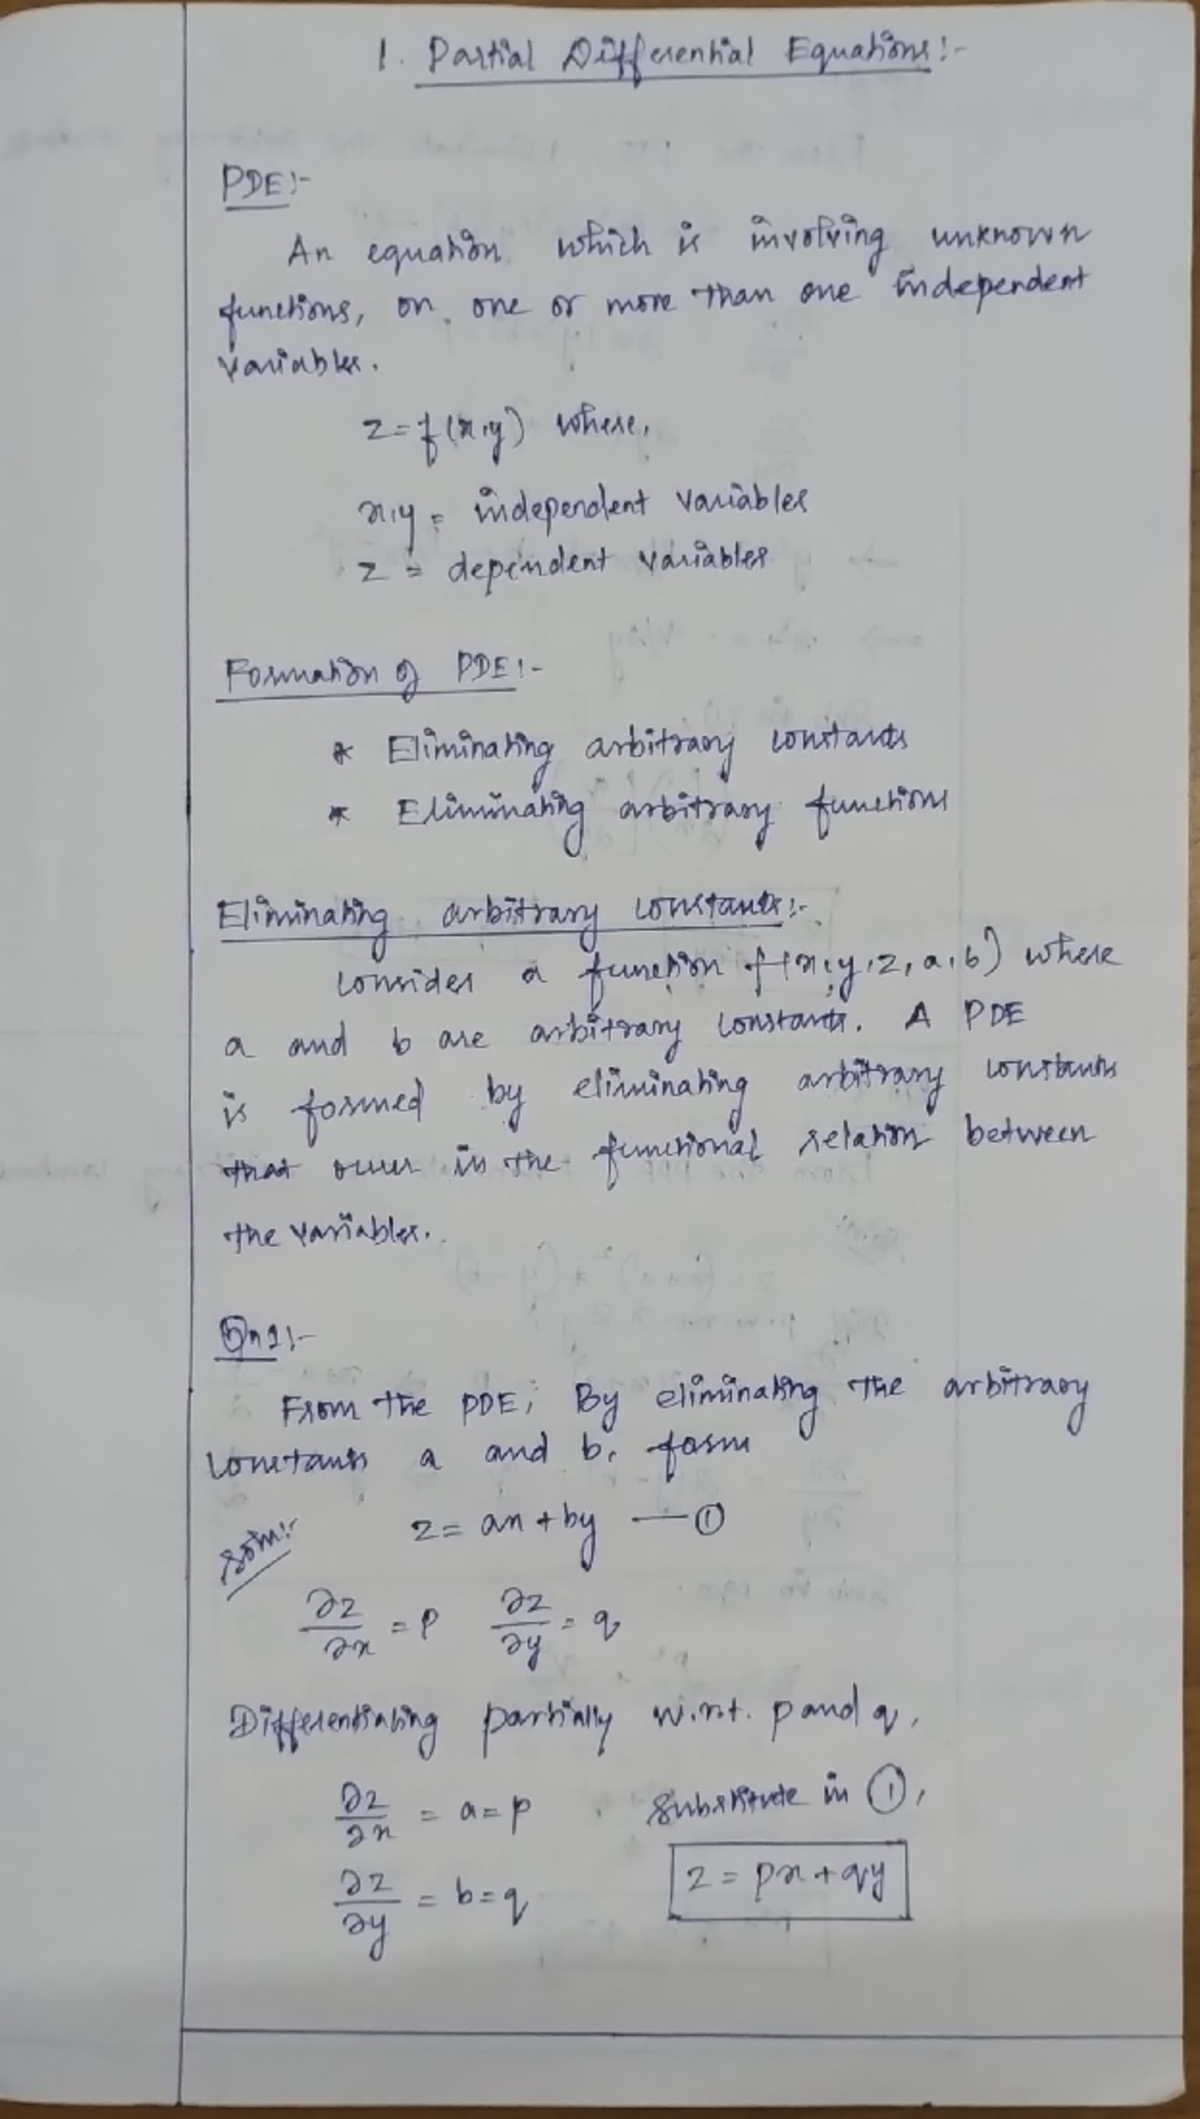 1. Partial Differential Equations:-
PDE:-
An equation which is involving unknown
functions, on one or more than one independent
variables.
z = f(x,y) where,
x,y = independent variables
z = dependent variables
Formation of PDE:-
* Eliminating arbitrary constants
* Eliminating arbitrary functions
Eliminating arbitrary constants:-
Consider a function f(x,y,z,a,b) where
a and b are arbitrary constants. A PDE
is formed by eliminating arbitrary constants
that occur in the functional relation between
the variables.
Qn1:-
From the PDE, By eliminating the arbitrary
constants a and b, form
Soln:- z = ax + by — ①
∂z/∂x = p ∂z/∂y = q
Differentiating partially w.r.t. p and q,
∂z/∂x = a = p Substitute in ①,
∂z/∂y = b = q z = px + qy